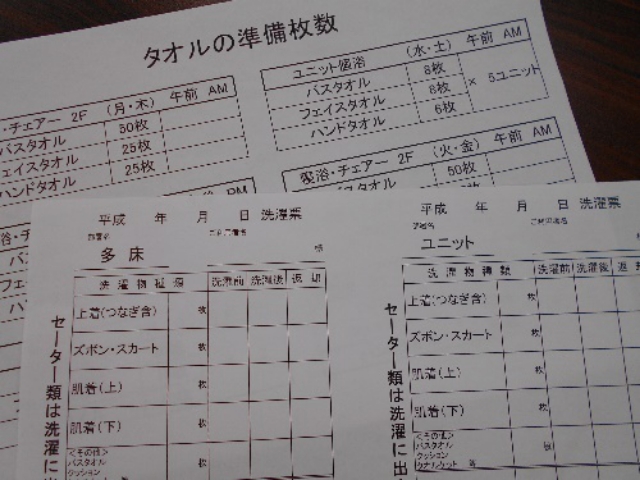 タオルの準備枚数
ユニット個浴 (水・土) 午前 AM
バスタオル 8枚
フェイスタオル 8枚 × 5ユニット
ハンドタオル 6枚
・チェアー 2F (月・木) 午前 AM
バスタオル 50枚
フェイスタオル 25枚
ハンドタオル 25枚
寝浴・チェアー 2F (火・金) 午前 AM
フェイスタオル 50枚
平成 年 月 日 洗濯票
部署名 ご利用者名
多床 様
洗濯物種類 洗濯前 洗濯後 返却
上着(つなぎ含) 枚
ズボン・スカート 枚
肌着(上) 枚
肌着(下) 枚
<その他>
バスタオル
クッション 枚
セーター類は洗濯に出
平成 年 月 日 洗濯票
部署名 ご利用者名
ユニット 様
洗濯物種類 洗濯前 洗濯後 返却
上着(つなぎ含) 枚
ズボン・スカート 枚
肌着(上) 枚
肌着(下) 枚
<その他>
バスタオル
クッション 枚
タオルケット 等
セーター類は洗濯に出